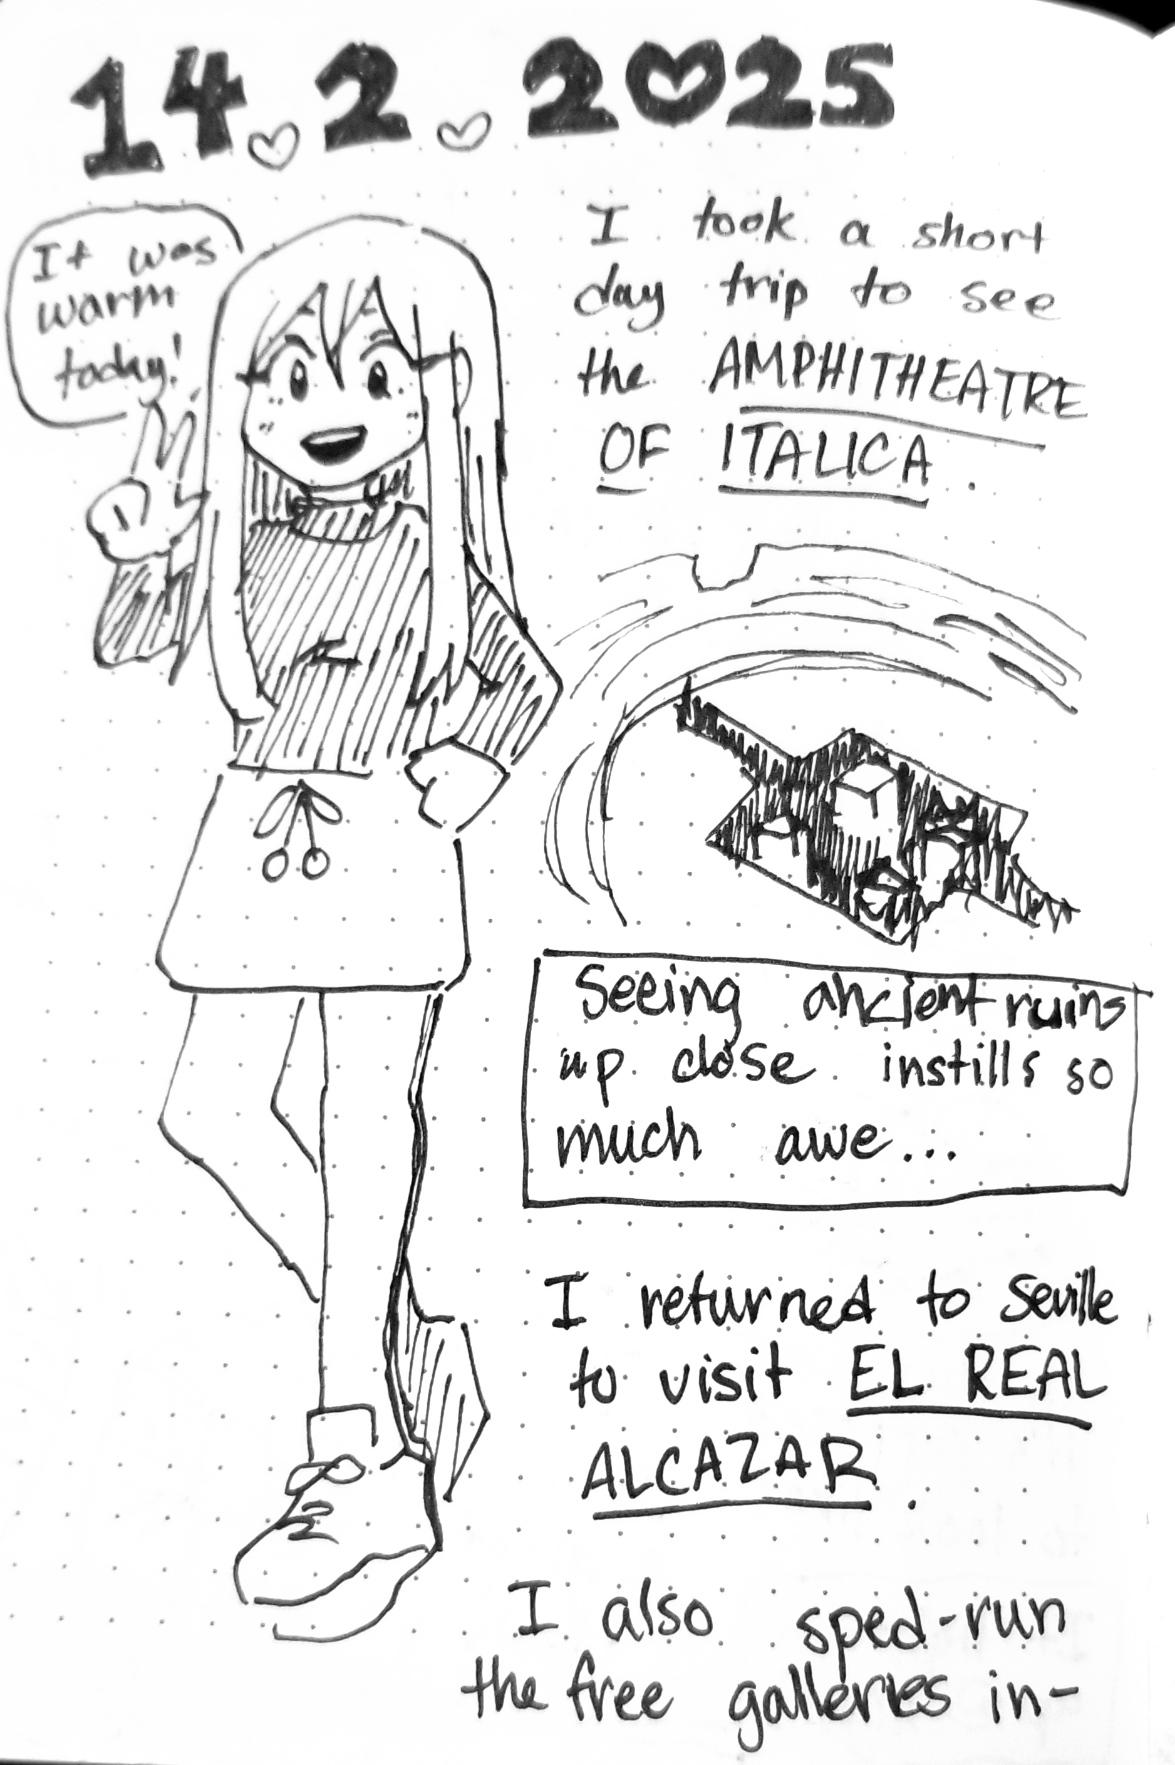 14.2.2025
It was
warm
today!
I took a short
day trip to see
the AMPHITHEATRE
OF ITALICA.
Seeing ancient ruins
up close instills so
much awe...
I returned to Seville
to visit EL REAL
ALCAZAR.
I also sped-run
the free galleries in-